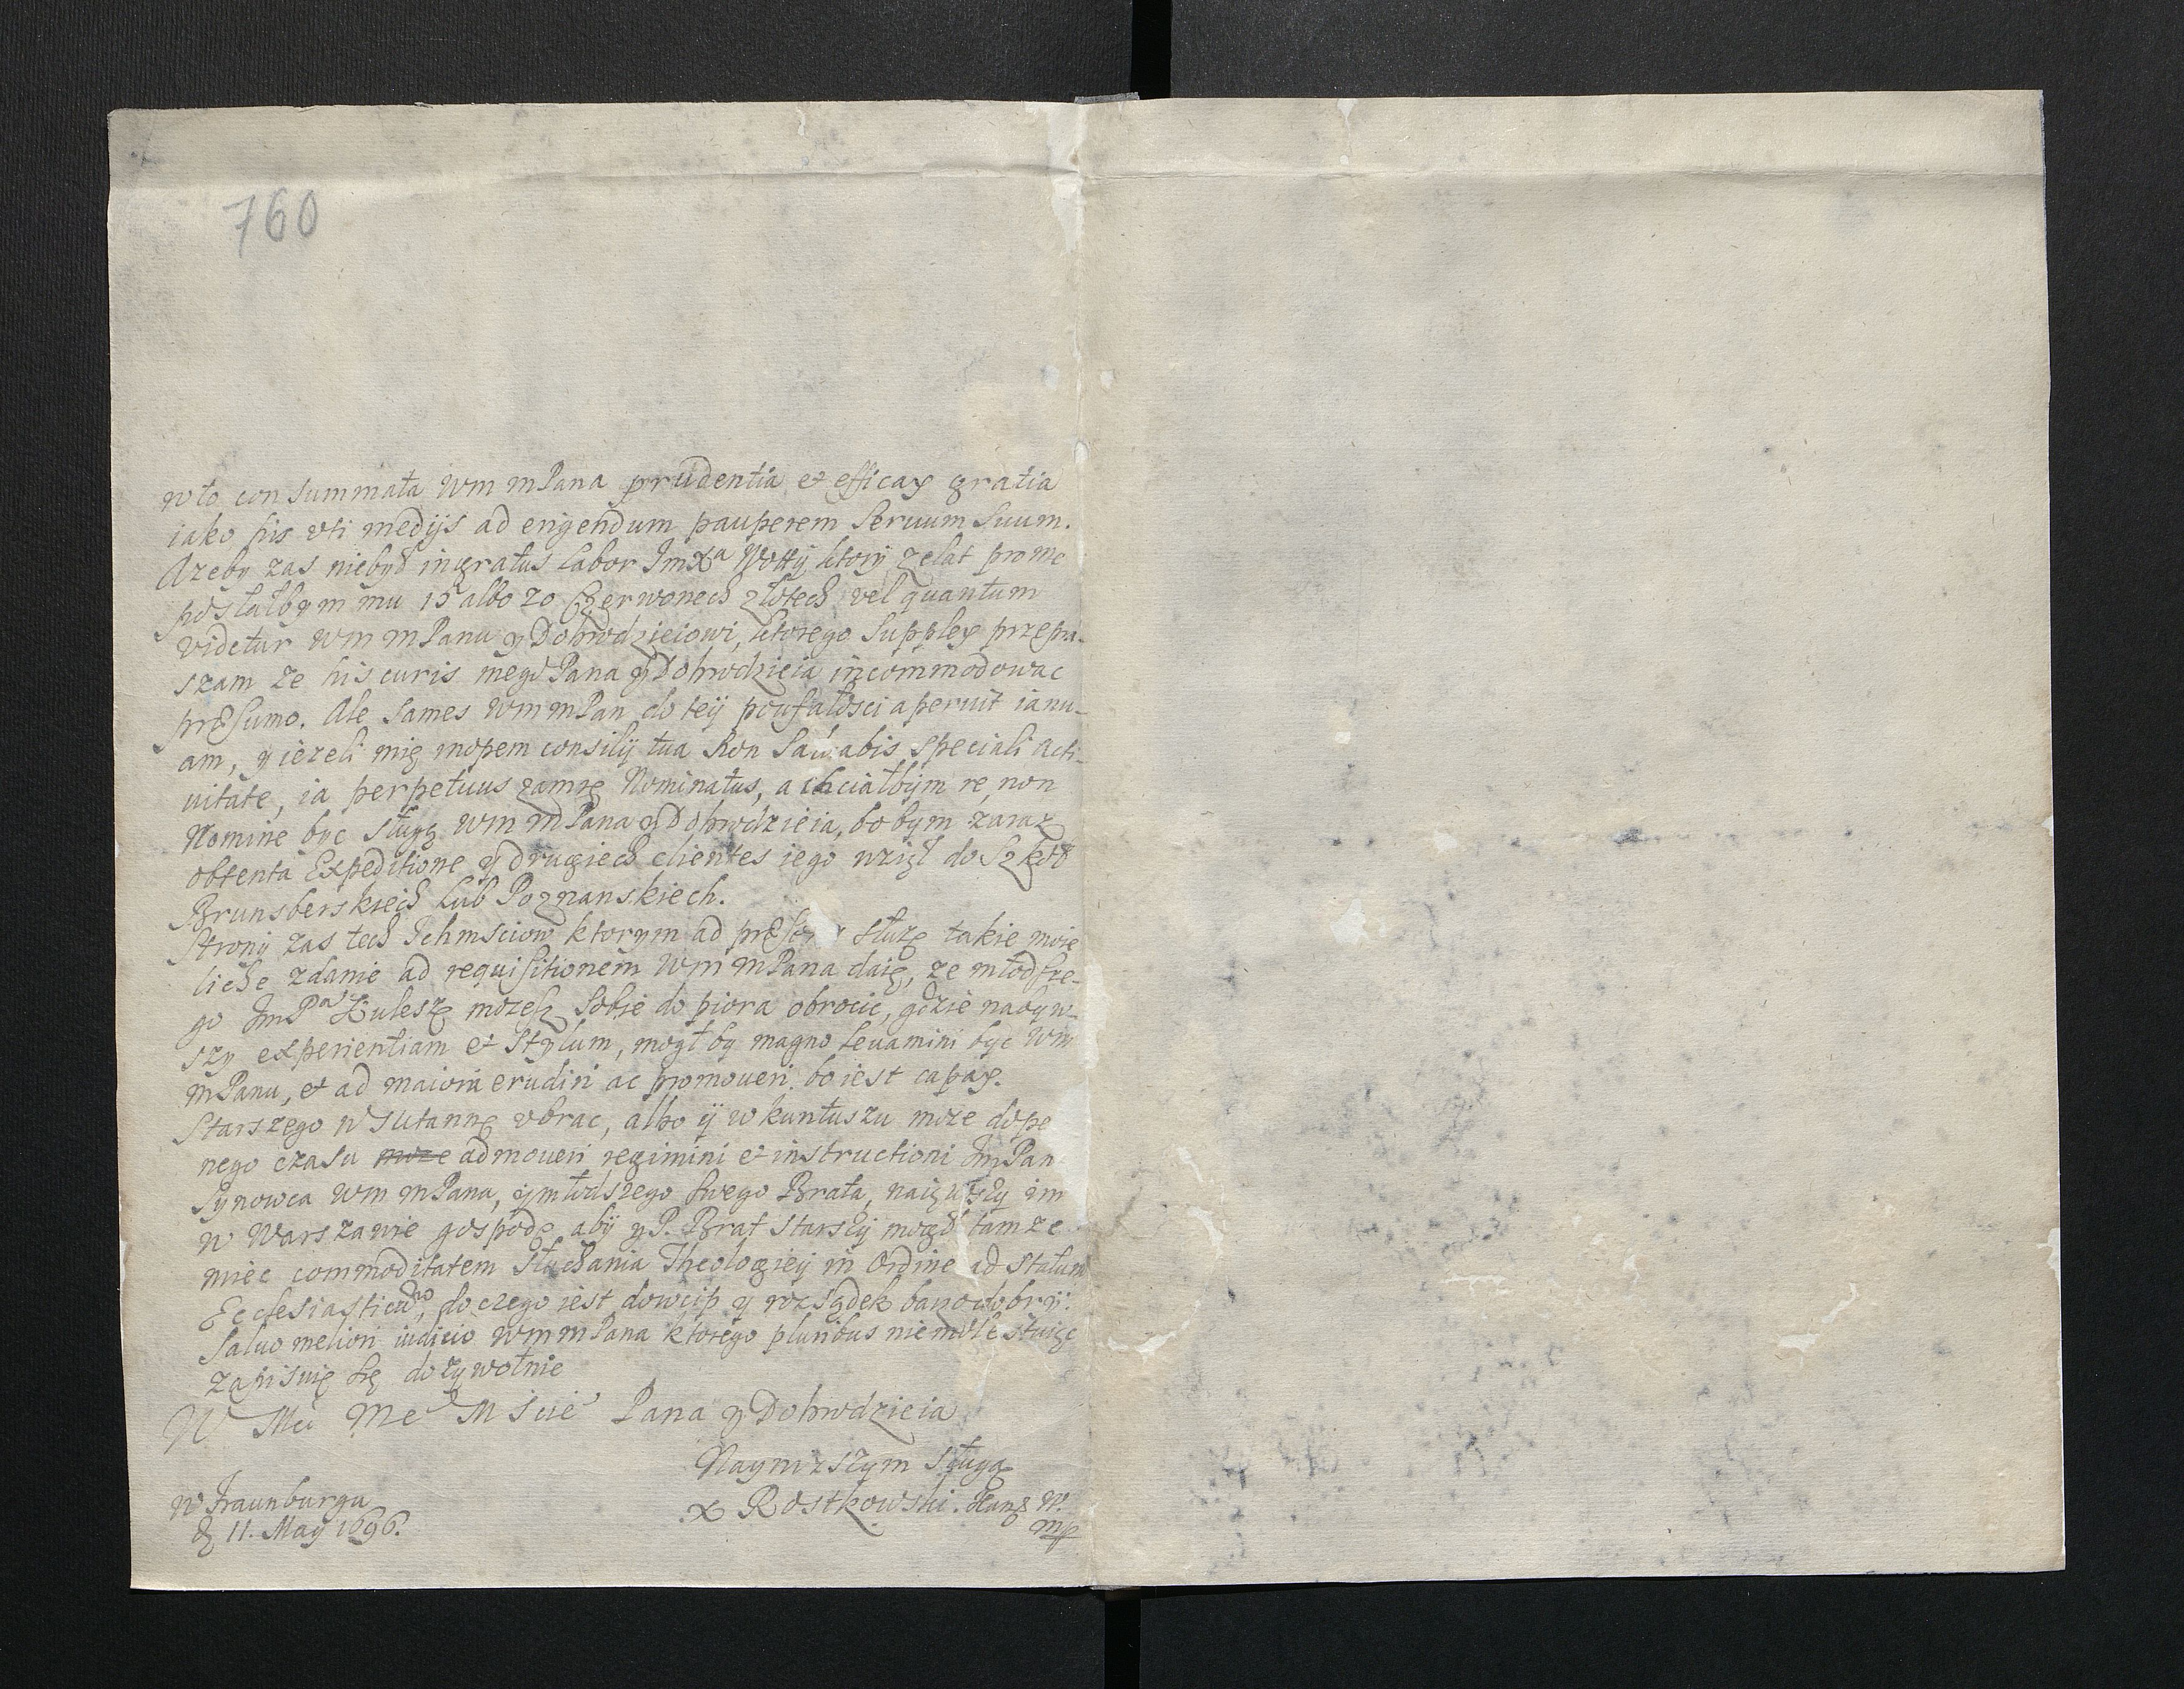 760
w to consummata Wm mPana prudentia et efficax gratia
iako his uti medijs ad erigendum pauperem Seruum Suum.
Azeby zas niebył ingratus labor Jmxa Wotty ktory zelat pro me
posłałbym mu 15 albo 20 Czerwonech złotech vel quantum
videtur Wm mPanu y Dobrodzieiowi, ktorego Supplex przepra-
szam ze his curis mego Pana y Dobrodzieia incommodowac
præsumo. Ale Sames Wm mPan do teÿ poufałosci aperuit ianu-
am, y iezeli mię inopem consilÿ tua non speciali acti-
uitate, ia perpetuus zamrę Nominatus, a chciałbym re, non
Nomine byc sługą Wm mPana y Dobrodzieia, bo bym zaraz
obtenta Expeditione y drugiech clientes iego wziął do Szkoł
Brunsberskiech lub Poznanskiech.
Strony zas tech Ichmsciow ktorym ad służę takie moie
liche zdanie ad requisitionem Wm mPana daię, ze młodsze-
go JmPa Kuleszę mozesz Sobie do piora obrocic, gdzie nabyw-
szy experientiam et Stylum, mogł by magno leuamini byc Wm
mPanu, et ad maiora erudiri ac promoueri. bo iest capax.
Starszego w Sutannę vbrac, albo ÿ w kuntuszu moze do pe
nego czasu moze admoueri regimini et instructioni Jm Pan
Synowca Wm mPana, y młodszego swego Brata, naiąwszy im
w Warszawie gospodę aby yP. Brat starszÿ mogł tamze
miec commoditatem słuchania Theologieÿ in Ordine ad Statum
Ecclesiasticum, do czego iest dowcip y rozsądek barzo dobrÿ.
Saluo meliori iudicio Wm mPana ktorego pluribus nie molestuiąc
zapisuię się dozywotnie
W Mci Me Mscie Pana y Dobrodzieia
Naynizszym sługą
x Rostkowski. Kan: W.
mp
w Fraunburgu
d 11. May 1696.